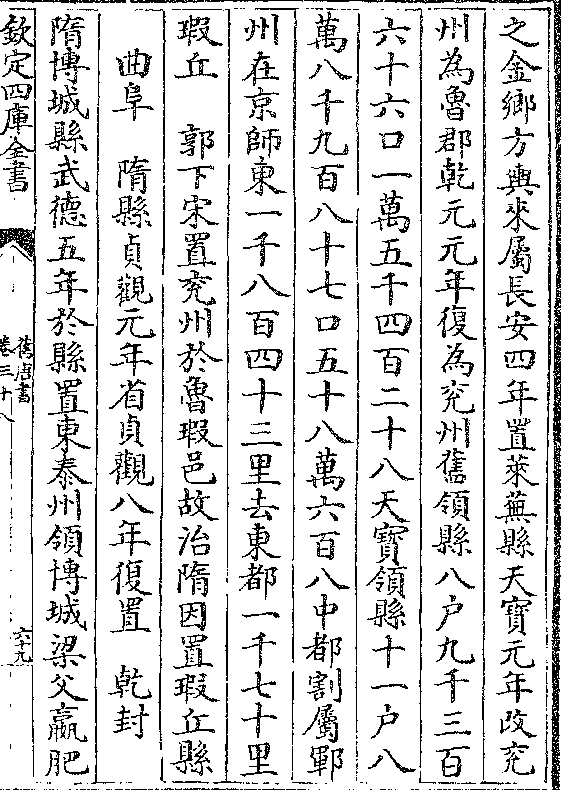 之金鄉方與來屬長安四年置萊蕪縣天寶元年改兖
州為魯郡乾元元年復為兖州舊領縣八户九千三百
六十六口一萬五千四百二十八天寶領縣十一户八
萬八千九百八十七口五十八萬六百八中都割屬鄆
州在京師東一千八百四十三里去東都一千七十里
瑕丘　郭下宋置兖州於魯瑕邑故治隋因置瑕丘縣
曲阜　隋縣貞觀元年省貞觀八年復置　乾封
隋博城縣武德五年於縣置東泰州領博城梁父嬴肥
欽定四庫全書
舊唐書
卷三十八
六十九